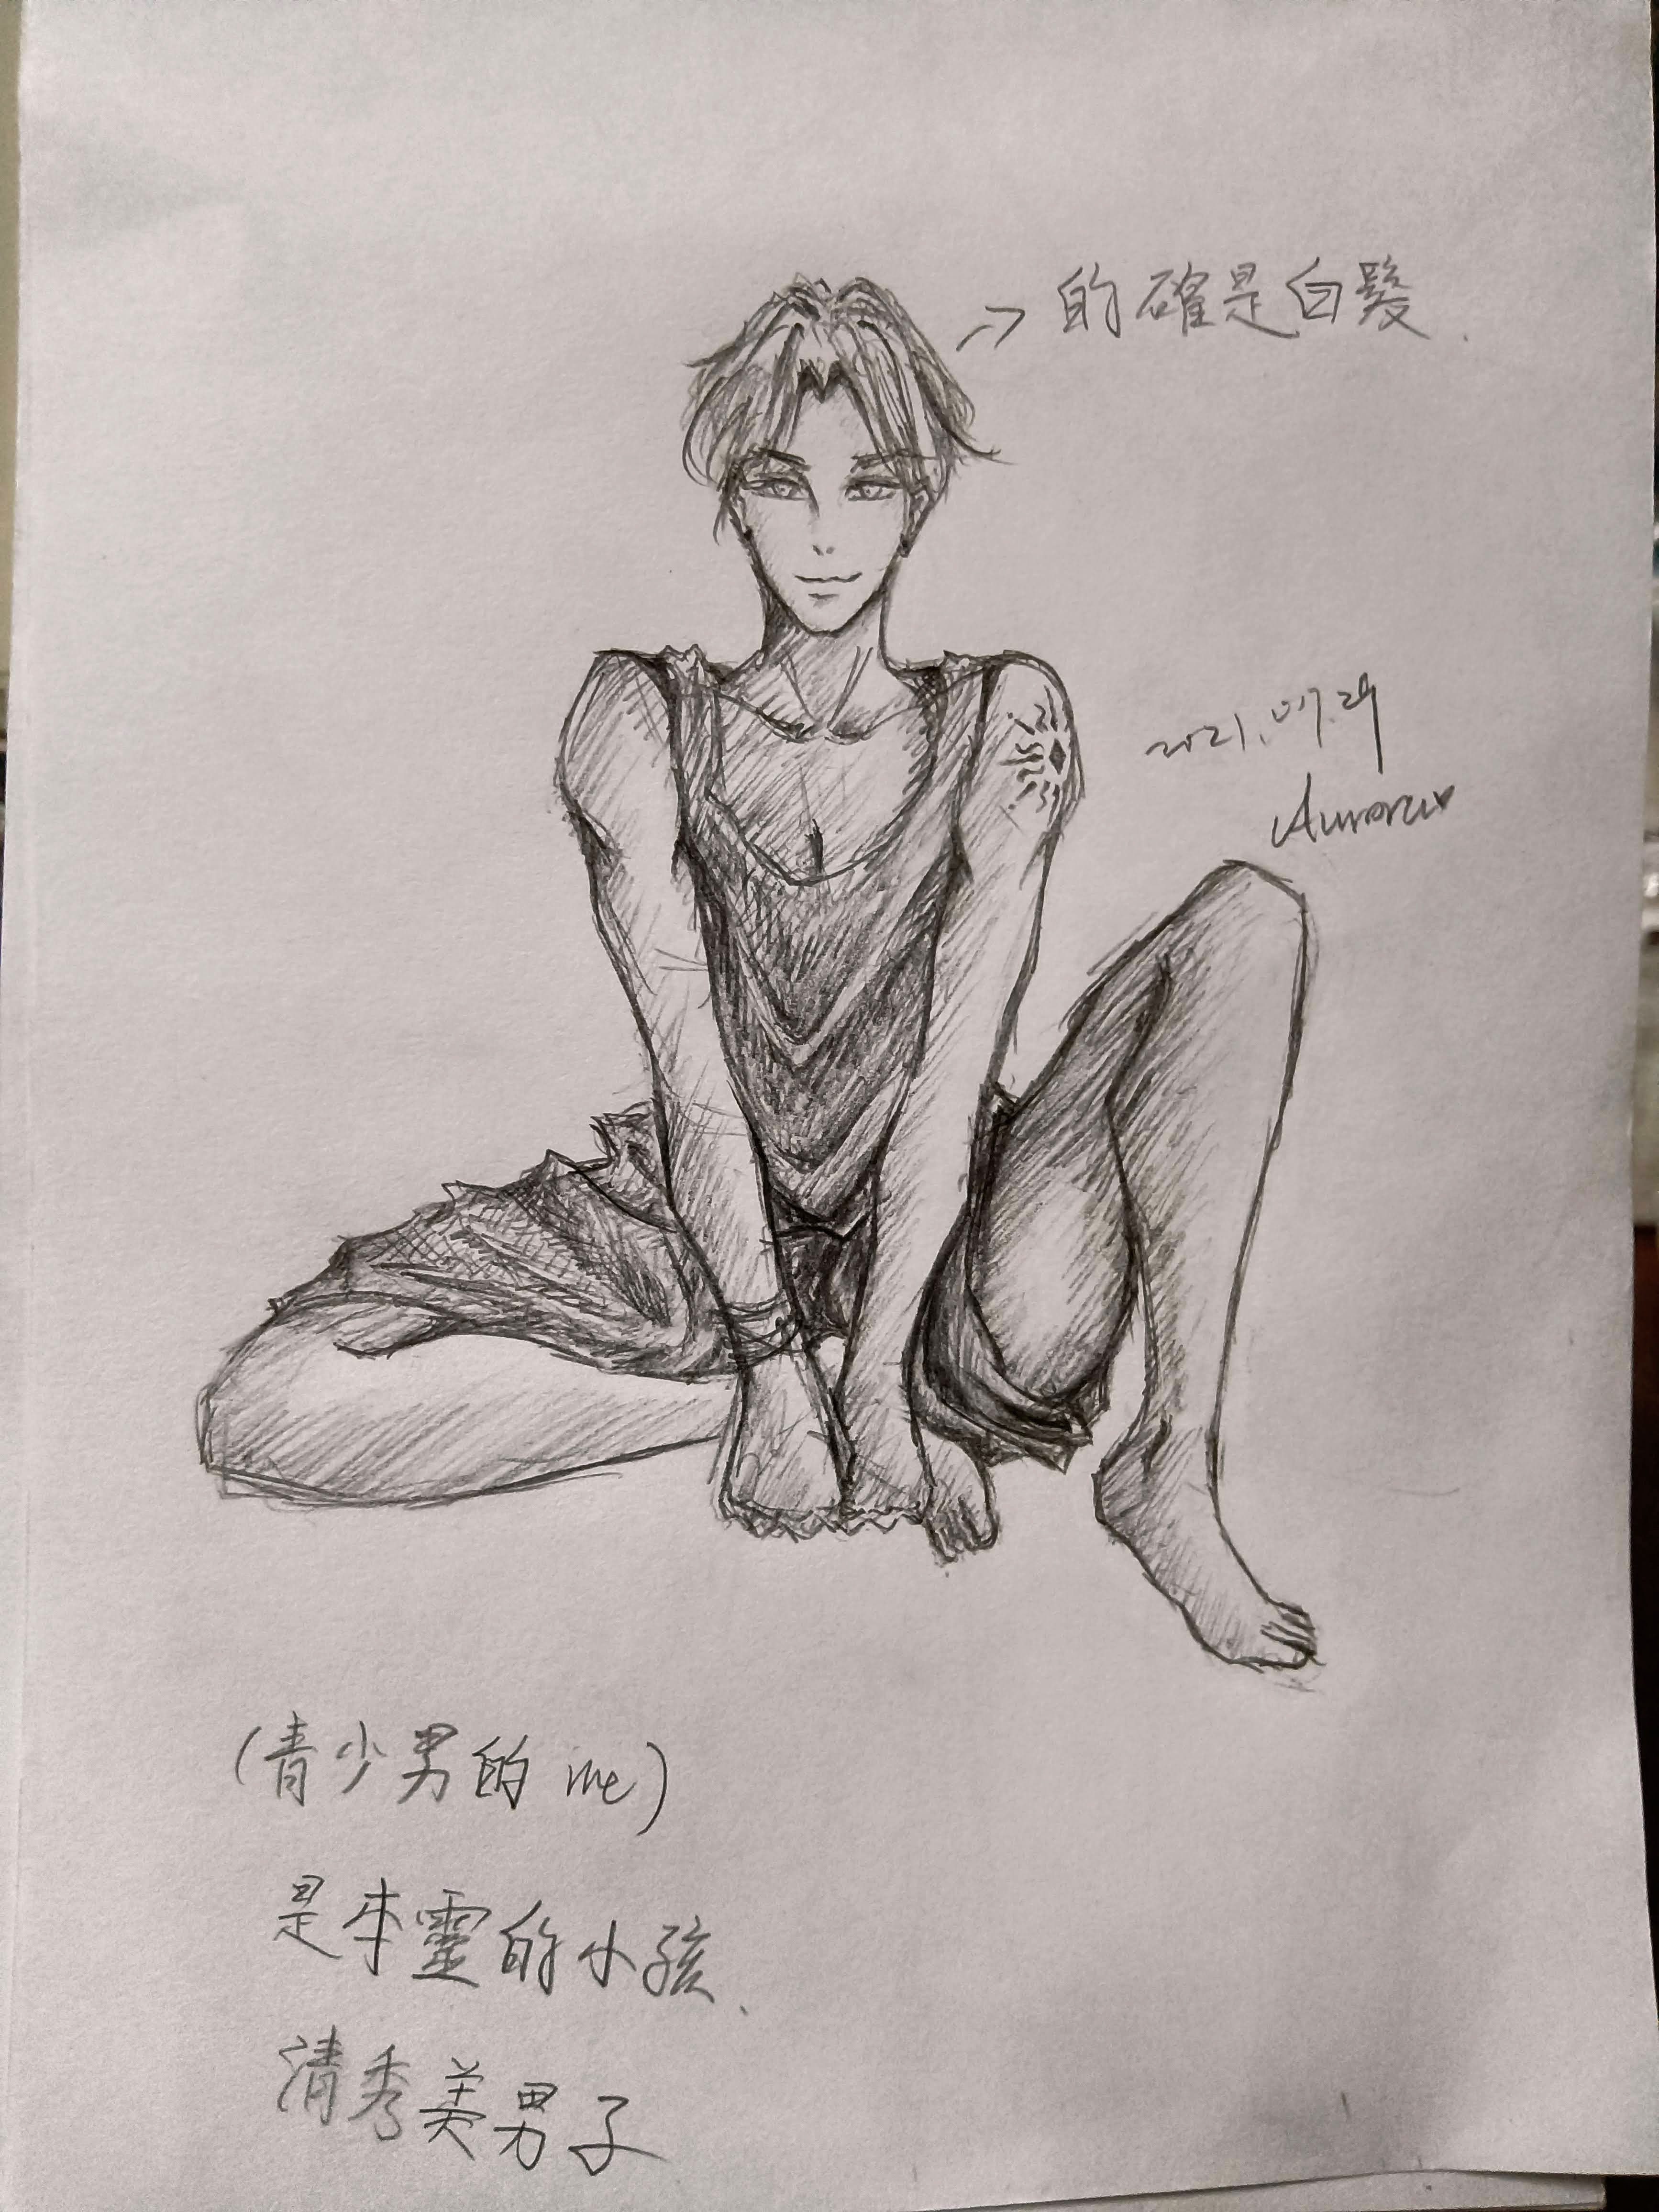 的確是白髮.
2021.07.29
Aurora♥
(青少男的 me)
是本靈的小孩、
清秀美男子